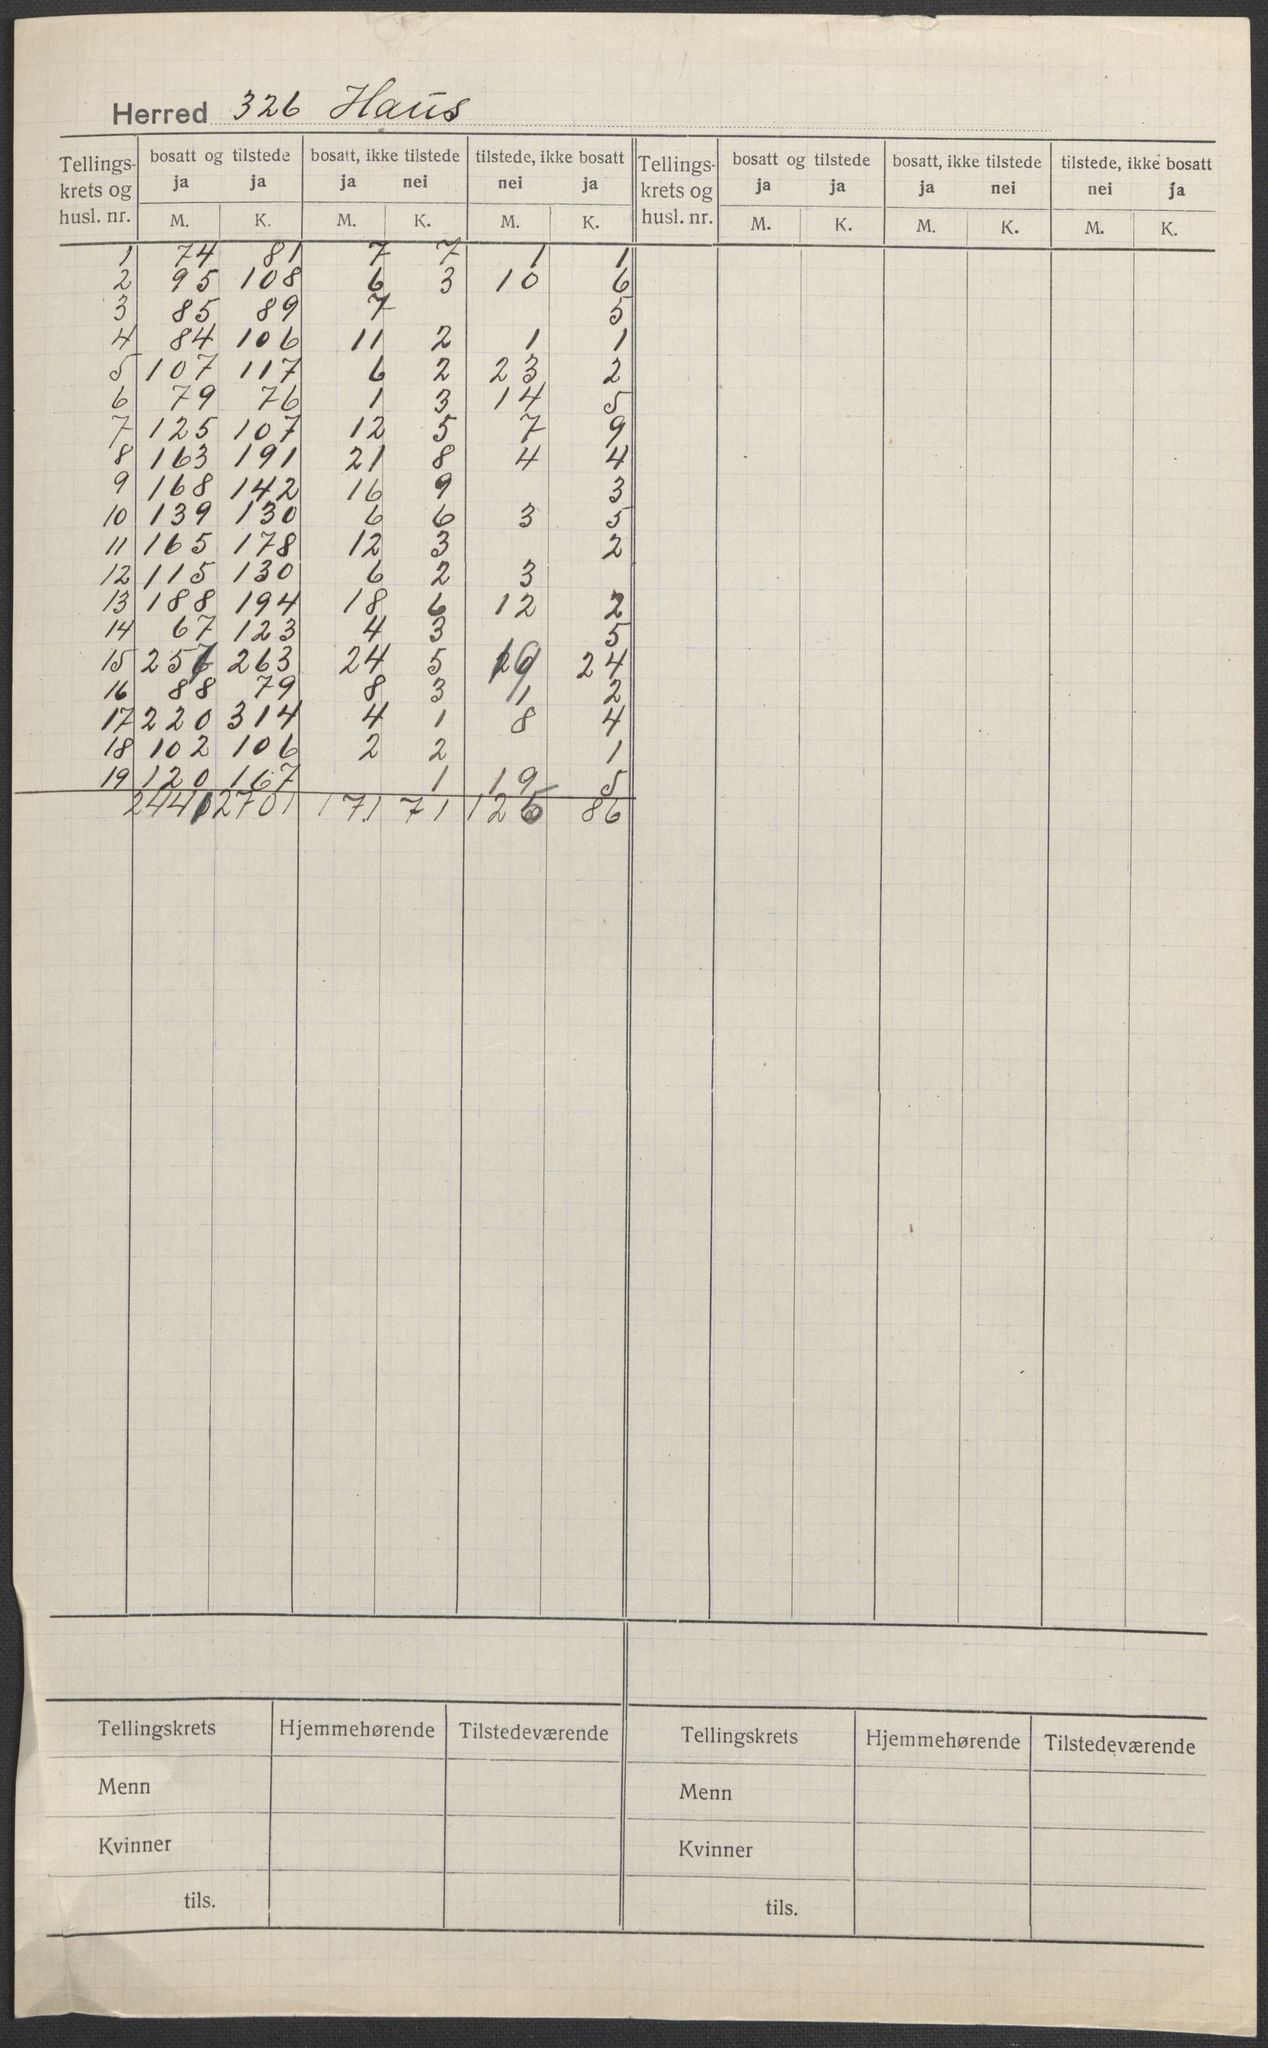 Herred 326 Haus
Tellings-krets og husl. nr. | bosatt og tilstede | bosatt, ikke tilstede | tilstede, ikke bosatt | Tellings-krets og husl. nr. | bosatt og tilstede | bosatt, ikke tilstede | tilstede, ikke bosatt
ja ja ja nei nei ja ja ja ja nei nei ja
M. K. M. K. M. K. M. K. M. K. M. K.
1 74 81 7 7 1 1
2 95 108 6 3 10 6
3 85 89 7 5
4 84 106 11 2 1 1
5 107 117 6 2 23 2
6 79 76 1 3 14 5
7 125 107 12 5 7 9
8 163 191 21 8 4 4
9 168 142 16 9 3
10 139 130 6 6 3 5
11 165 178 12 3 2
12 115 130 6 2 3
13 188 194 18 6 12 2
14 67 123 4 3 5
15 257 263 24 5 19 24
16 88 79 8 3 1 2
17 220 314 4 1 8 4
18 102 106 2 2 1
19 120 167 1 19 5
2441 2701 171 71 125 86
Tellingskrets Hjemmehørende Tilstedeværende Tellingskrets Hjemmehørende Tilstedeværende
Menn Menn
Kvinner Kvinner
tils. tils.